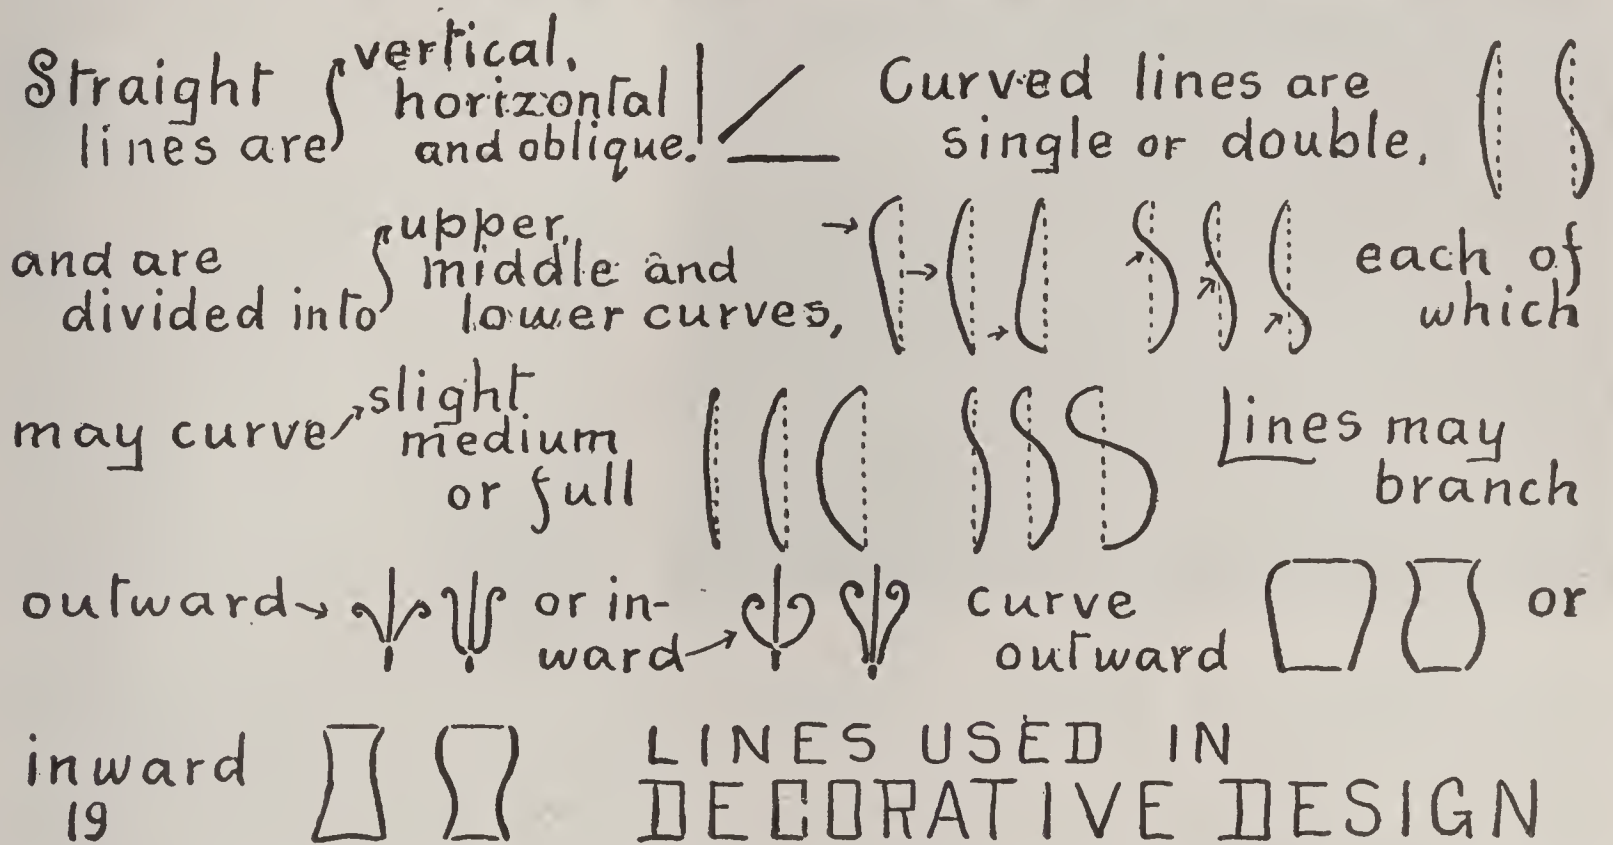 Straight
lines are
vertical,
horizontal
and oblique.
Curved lines are
single or double,
and are
divided into
upper,
middle and
lower curves,
each of
which
may curve
slight
medium
or full
Lines may
branch
outward
or in-
ward
curve
outward
or
inward
19
LINES USED IN
DECORATIVE DESIGN